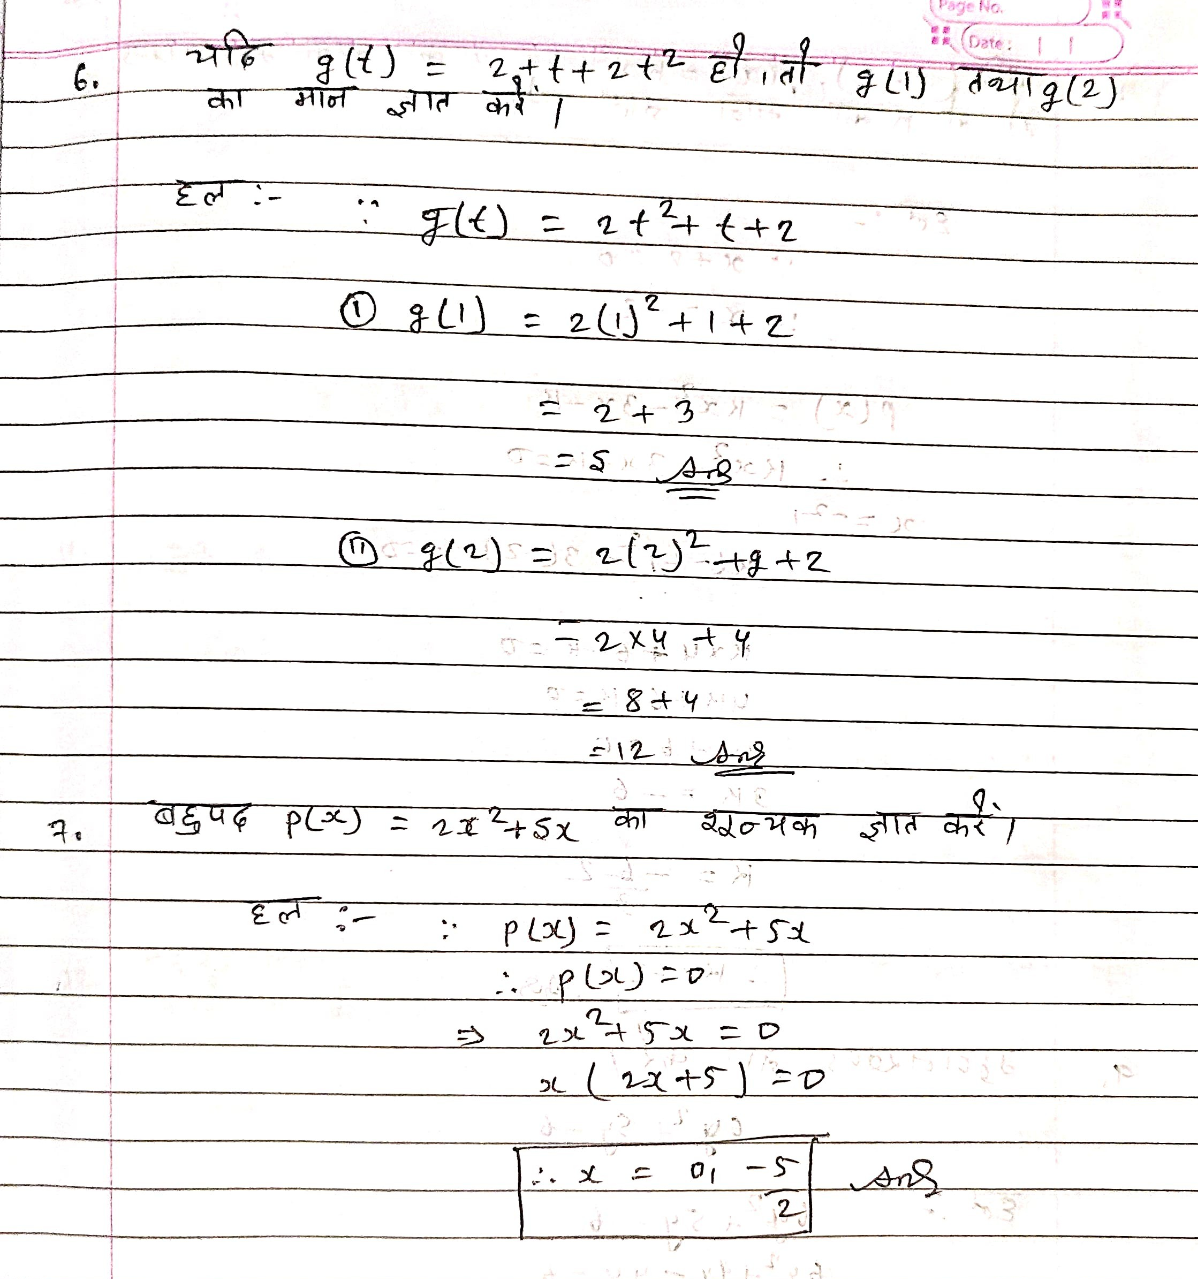 Page No.
Date: | |
6. यदि g(t) = 2 + t + 2t² हो, तो g(1) तथा g(2)
का मान ज्ञात करें।
हल :- ∵ g(t) = 2t² + t + 2
① g(1) = 2(1)² + 1 + 2
= 2 + 3
= 5 Ans
⑪ g(2) = 2(2)² + 2 + 2
= 2 × 4 + 4
= 8 + 4
= 12 Ans
7. बहुपद p(x) = 2x² + 5x का शून्यक ज्ञात करें।
हल :- ∵ p(x) = 2x² + 5x
∴ p(x) = 0
⇒ 2x² + 5x = 0
x (2x + 5) = 0
∴ x = 0, -5/2 Ans